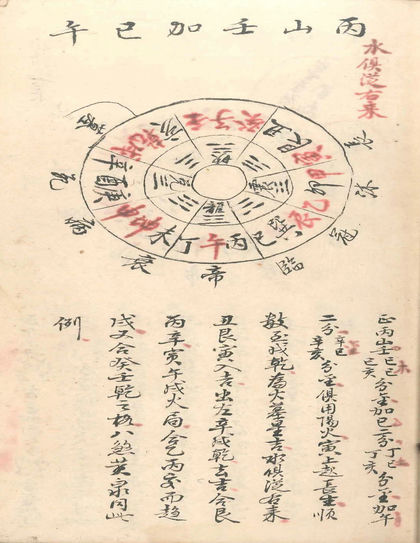 丙山壬加巳午
水俱從右来
壬子癸
丑艮寅
甲卯乙
辰巽巳
丙午丁
未坤申
庚酉辛
戌乾亥
冠
臨
帝
衰
病
死
墓
正丙山壬己巳己亥分金加巳二分丁巳丁亥分金加午
二分辛巳辛亥分金俱用陽火寅上起長生順
数至戌乾為火墓星吉水俱從右来
丑艮寅入吉出左辛戌乾去吉合艮
丙辛寅午戌火局合乙丙交而趋
戌又合癸壬乾之格八煞黄泉同此
例